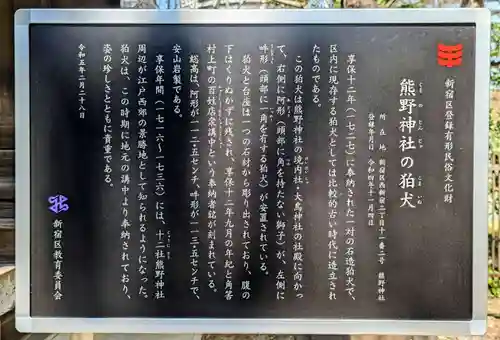 新宿区登録有形民俗文化財
熊野神社の狛犬
くまのじんじゃ
こまいぬ
所在地 新宿区西新宿二丁目十一番二号 熊野神社
登録年月日 令和四年十一月四日
享保十二年(一七二七)に奉納された一対の石造狛犬で、
区内に現存する狛犬としては比較的古い時代に造立され
たものである。
この狛犬は熊野神社の境内社・大鳥神社の社殿に向かっ
て、右側に阿形(頭部に角を持たない獅子)が、左側に
吽形(頭部に一角を有する狛犬)が安置されている。
狛犬と台座は一つの石材から彫り出されており、腹の
下はくりぬかずに残され、享保十二年九月の年紀と角筈
村上町の百姓店衆講中という奉納者銘が刻まれている。
総高は、阿形が一二・五センチ、吽形が一一三・五センチで、
安山岩製である。
享保年間(一七一六~一七三六)には、十二社熊野神社
周辺が江戸西郊の景勝地として知られるようになった。
狛犬は、この時期に地元の講中より奉納されており、
姿の珍しさとともに貴重である。
令和五年二月二十八日
新宿区教育委員会